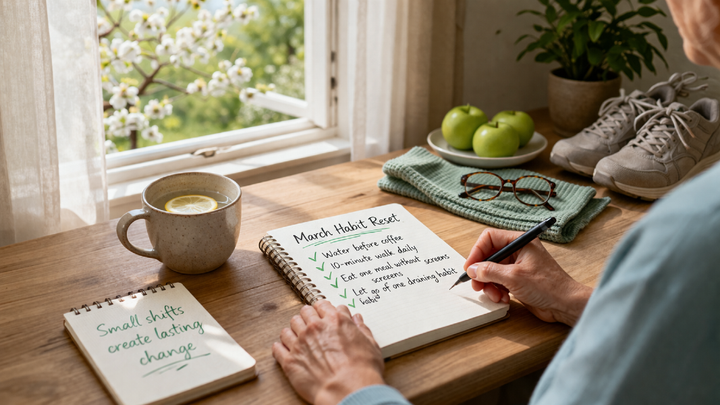 March Habit Reset
✓ Water before coffee
✓ 10-minute walk daily
✓ Eat one meal without screens
screeens
✓ Let go of one draining habit
✓ habit
Small shifts
create lasting
change